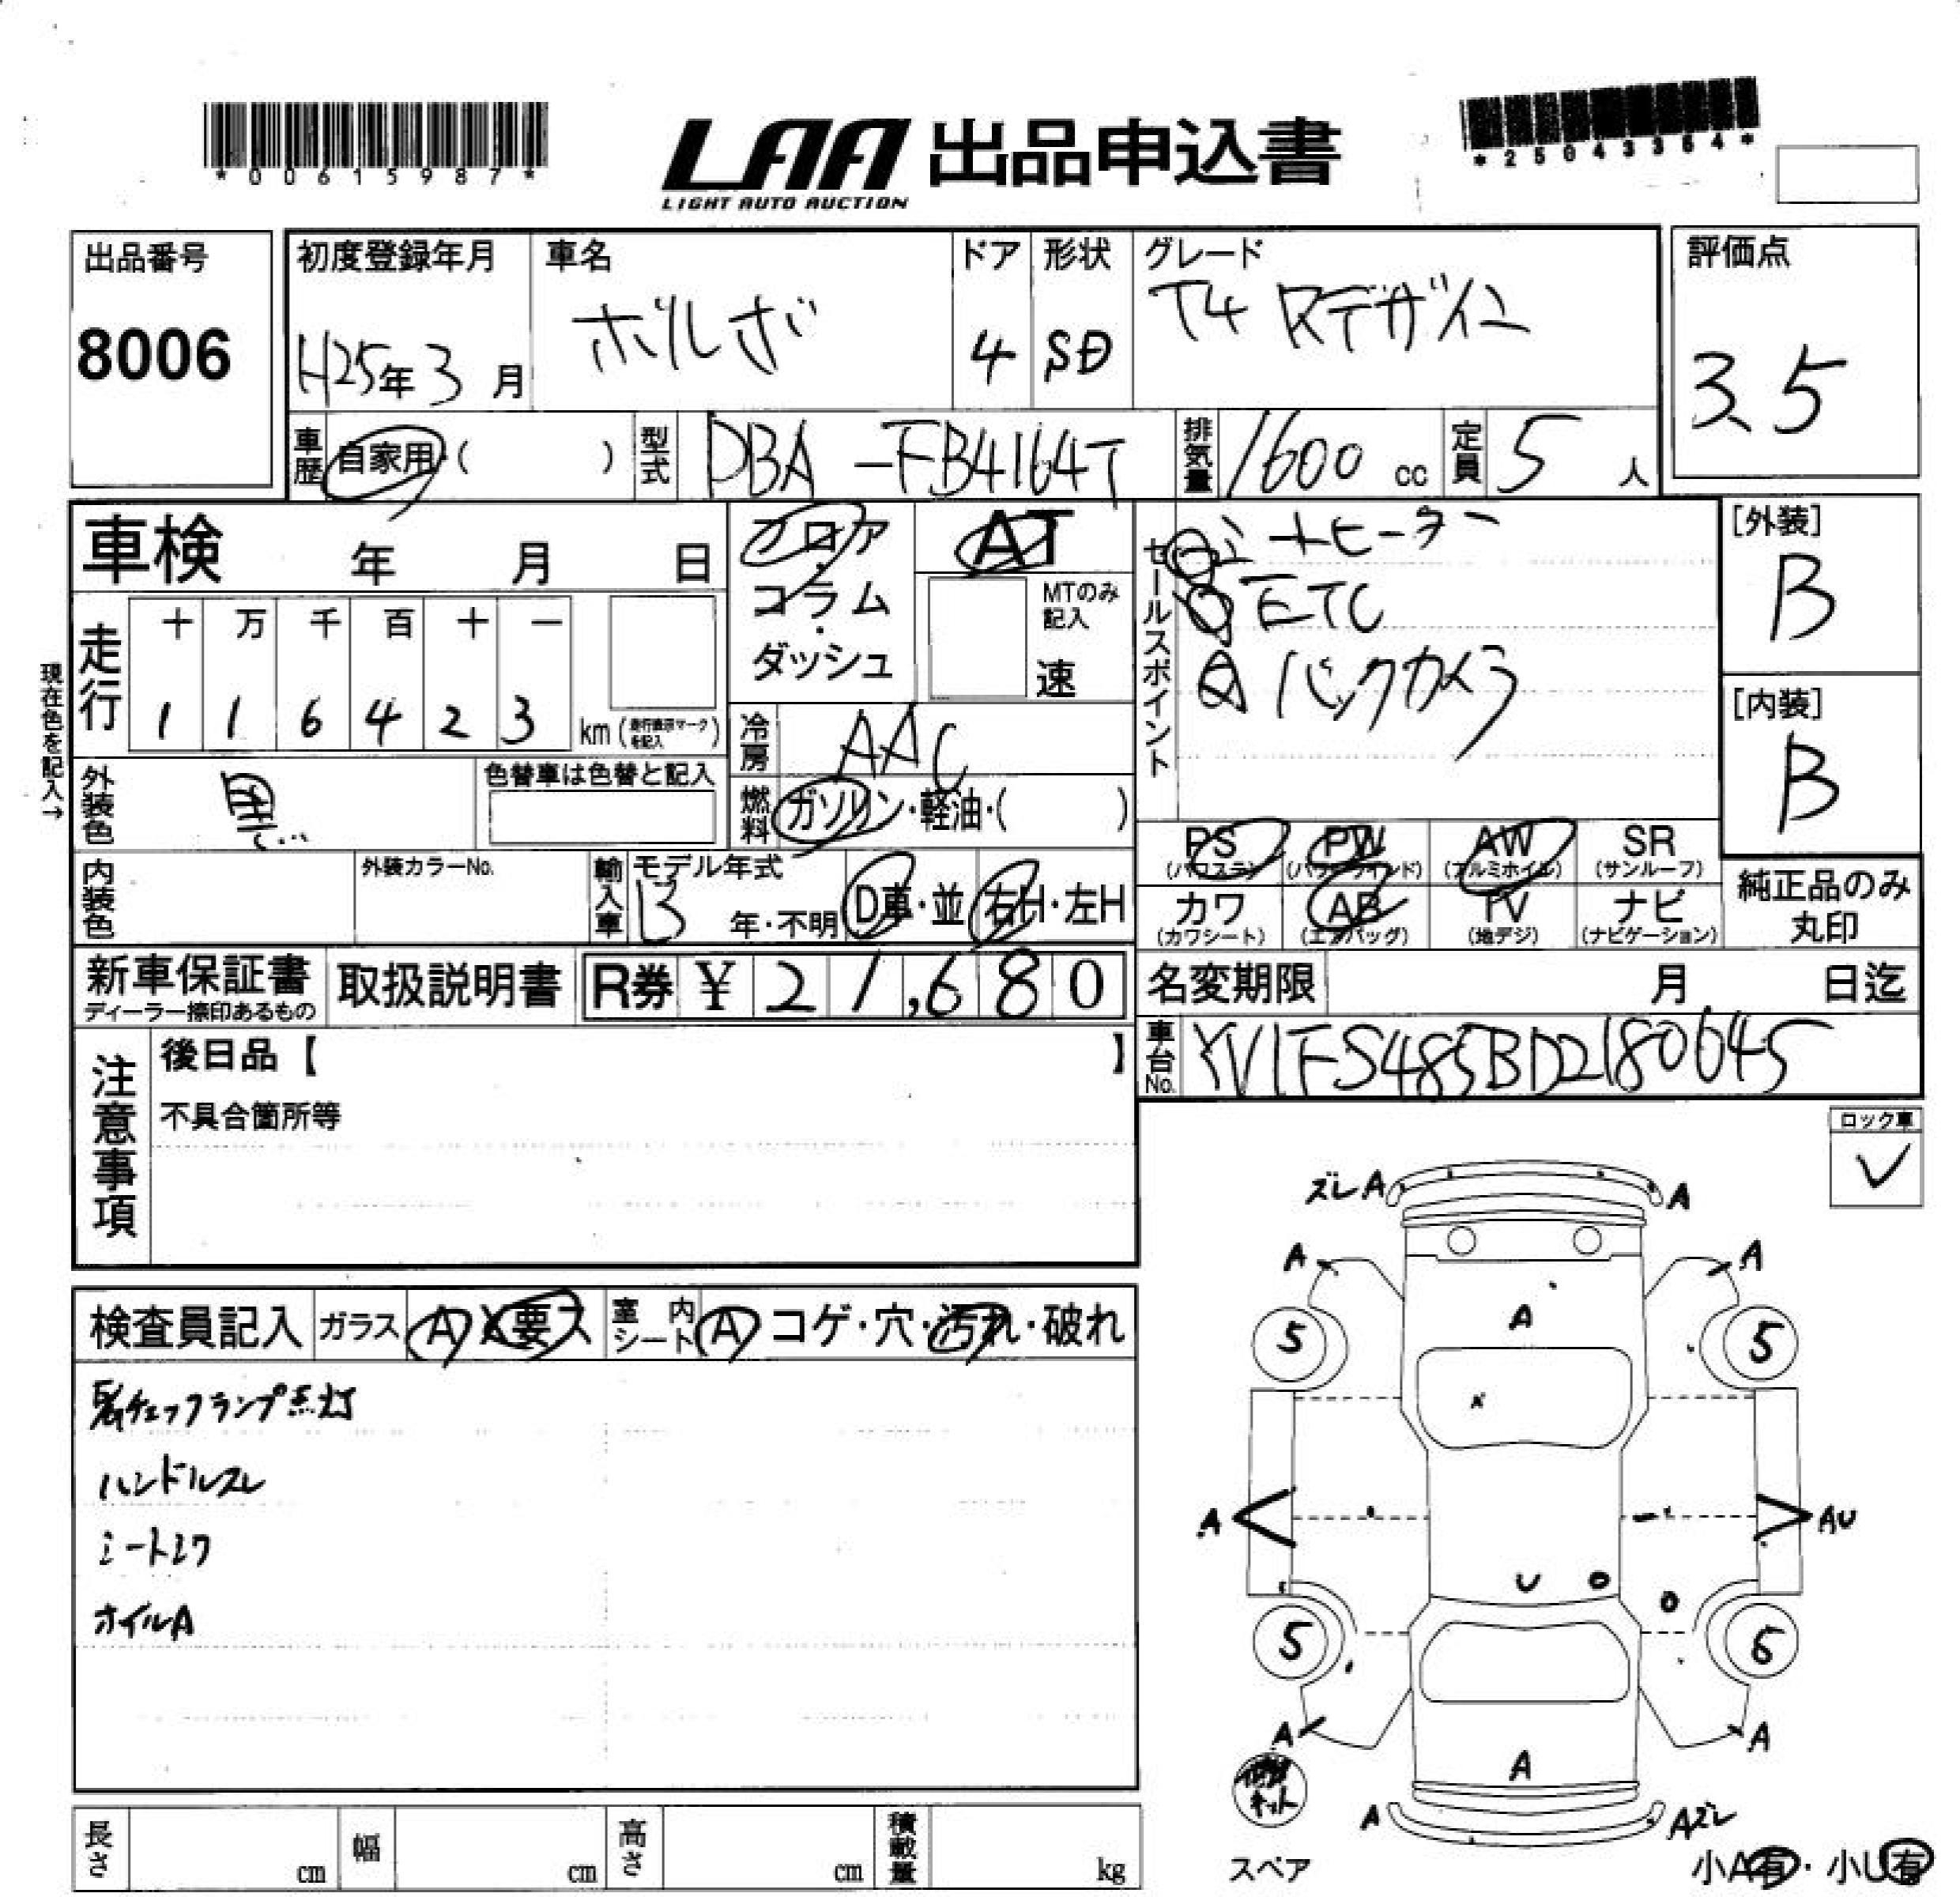 *00615987*
LAA 出品申込書
LIGHT AUTO AUCTION
*25043364*
出品番号
8006
初度登録年月
H25年3月
車名
ボルボ
ドア
4
形状
SD
グレード
T4 Rデザイン
評価点
3.5
車歴
自家用・( )
型式
DBA-FB4164T
排気量
1600 cc
定員
5人
車検 年 月 日
走行
十 万 千 百 十 一
1 1 6 4 2 3
km(走行表示マークを記入)
現在色を記入→
フロア・コラム・ダッシュ
AT
MTのみ記入
速
冷房
AAC
燃料
ガソリン・軽油・( )
セールスポイント
シートヒーター
ETC
バックカメラ
[外装]
B
[内装]
B
外装色
黒
色替車は色替と記入
内装色
外装カラーNo.
輸入車
モデル年式
13年・不明
D車・並
右H・左H
PS
(パワステ)
PW
(パワーウインド)
AW
(アルミホイル)
SR
(サンルーフ)
カワ
(カワシート)
AB
(エアバッグ)
TV
(地デジ)
ナビ
(ナビゲーション)
純正品のみ丸印
新車保証書
ディーラー捺印あるもの
取扱説明書
R券 ¥21,680
名変期限 月 日迄
車台No.
YV1FS485BD2180645
注意事項
後日品【 】
不具合箇所等
ロック車
✓
検査員記入
ガラス
A X 要ス
室内シート
A コゲ・穴・汚れ・破れ
チェックランプ点灯
ハンドルスレ
シートシワ
ホイルA
ズレA
A
A
A
A
5
5
A
A
AU
U
5
6
A
A
A
A
Aズレ
修理キット
スペア
小A有・小U有
長さ cm
幅 cm
高さ cm
積載量 kg